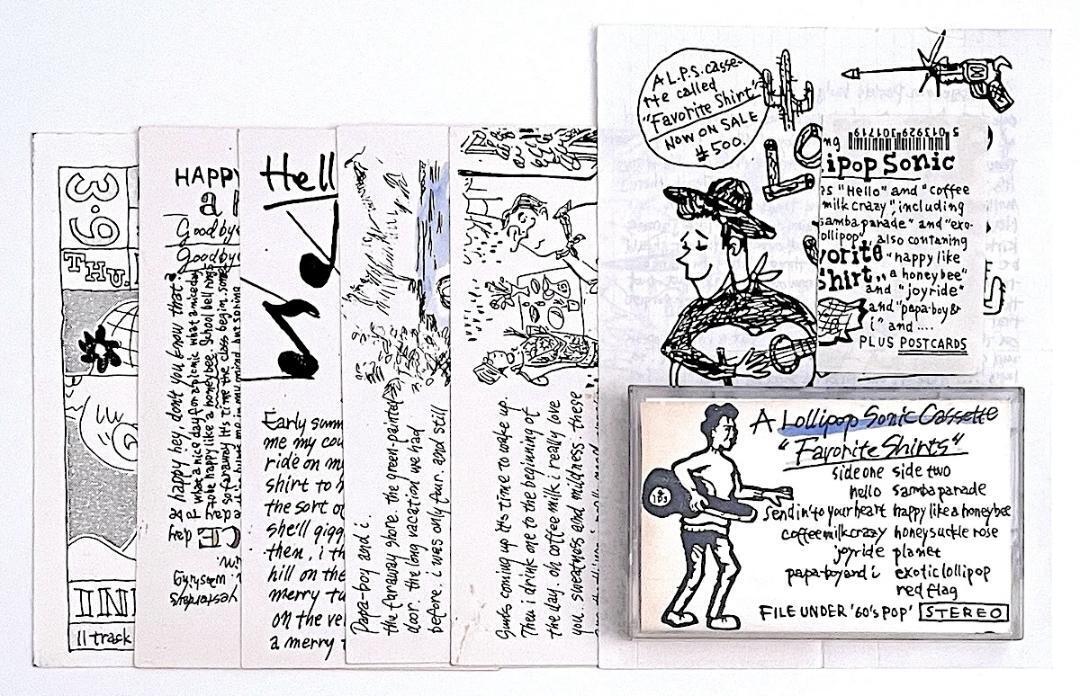 3·9
THU.
INI
11 track
HAPPY
a
Goodbye
Goodbye
& happy hey, don't you know that's
what a nice day for a picnic what a nice day
to be happy like a honeybee. School bell rings
so far away. It's time the class begin. some
day
yesterdays
Hell
Early summ
me my cou
ride on my
shirt to h
the sort o
she'll gigg
then, i th
hill on the
merry tu
on the ve
a merry
Papa-boy and i.
the faraway shore. the green-painted
door. the long vacation we had
before. i was only four. and still
Sun's coming up it's time to wake up.
Then i drink one to the beginning of
the day. oh coffee milk i really love
you. sweetness and mildness. these
A L.P.S. casse-
tte called
"Favorite Shirt"
NOW ON SALE
¥500.
LO
5 013929 301719
ng
ipop Sonic
s "Hello" and "coffee
milk crazy" including
samba parade" and "exo-
ollipop" also contaning
vorite "happy like
shirt" a honey bee"
and "joyride"
and "papa-boy &
i" and ....
PLUS POSTCARDS
A Lollipop Sonic Cassette
"Favorite Shirts"
side one side two
hello samba parade
sendin' to your heart happy like a honeybee
coffeemilkcrazy honeysuckle rose
joyride planet
papa-boy and i exotic lollipop
red flag
FILE UNDER '60's POP' STEREO